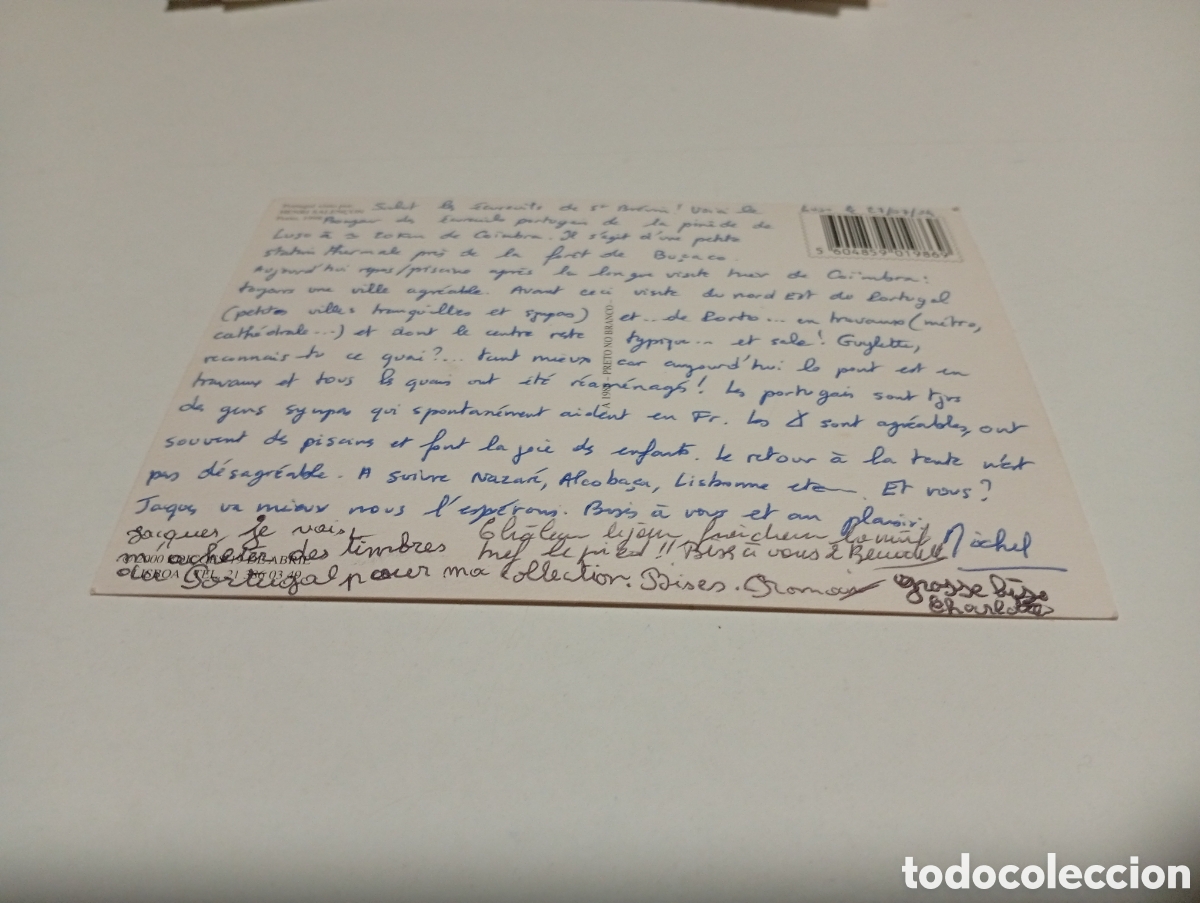 HENRI
Salut
Luso le
de la pinède de
Luso à 20 km de Coïmbra. Il s'agit d'une petite
station thermale près de la forêt de Buçaco.
5 604859 019869
Aujourd'hui repas/piscine après la longue visite hier de Coïmbra :
toujours une ville agréable. Avant ceci visite du nord Est du Portugal
(petites villes tranquilles et sympas) et... de Porto... en travaux (métro,
cathédrale...) et dont le centre reste typique... et sale! Guylette,
reconnais-tu ce quai?... tant mieux car aujourd'hui le pont est en
travaux et tous les quais ont été réaménagés! Les portugais sont tjrs
des gens sympas qui spontanément aident en Fr. Les sont agréables, ont
souvent des piscines et font la joie des enfants. Le retour à la tente n'est
pas désagréable. A suivre Nazaré, Alcobaça, Lisbonne etc. Et vous?
PRETO NO BRANCO
Jaques va mieux nous l'espérons. Bises à vous et au plaisir, Michel
Jacques, je vais m'acheter des timbres
du Portugal pour ma collection. Bises. Romain
Chaleur le jour, fraîcheur la nuit,
bref le pied!! Bises à vous 2
grosse bise
Charlotte
todocoleccion